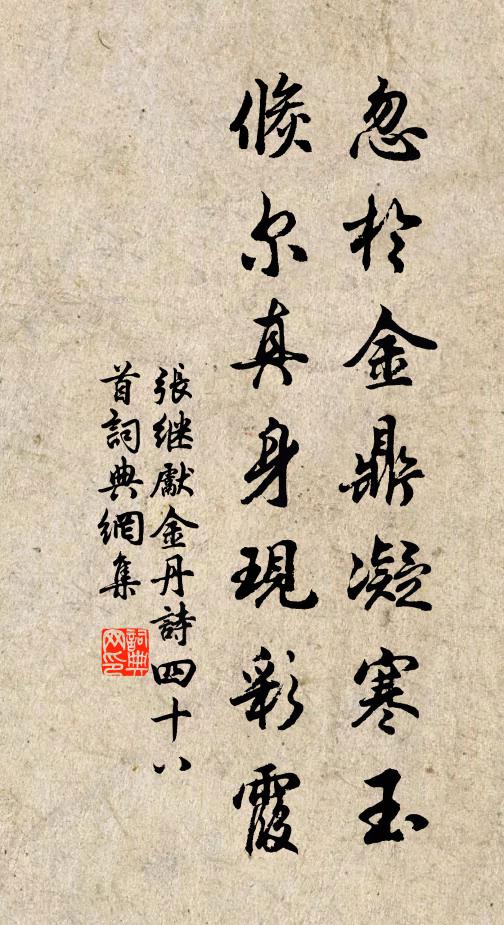 忽於金鼎凝寒玉
倏尔真身現彩霞
張继獻金丹詩四十八
首詞典網集
詞典
网印